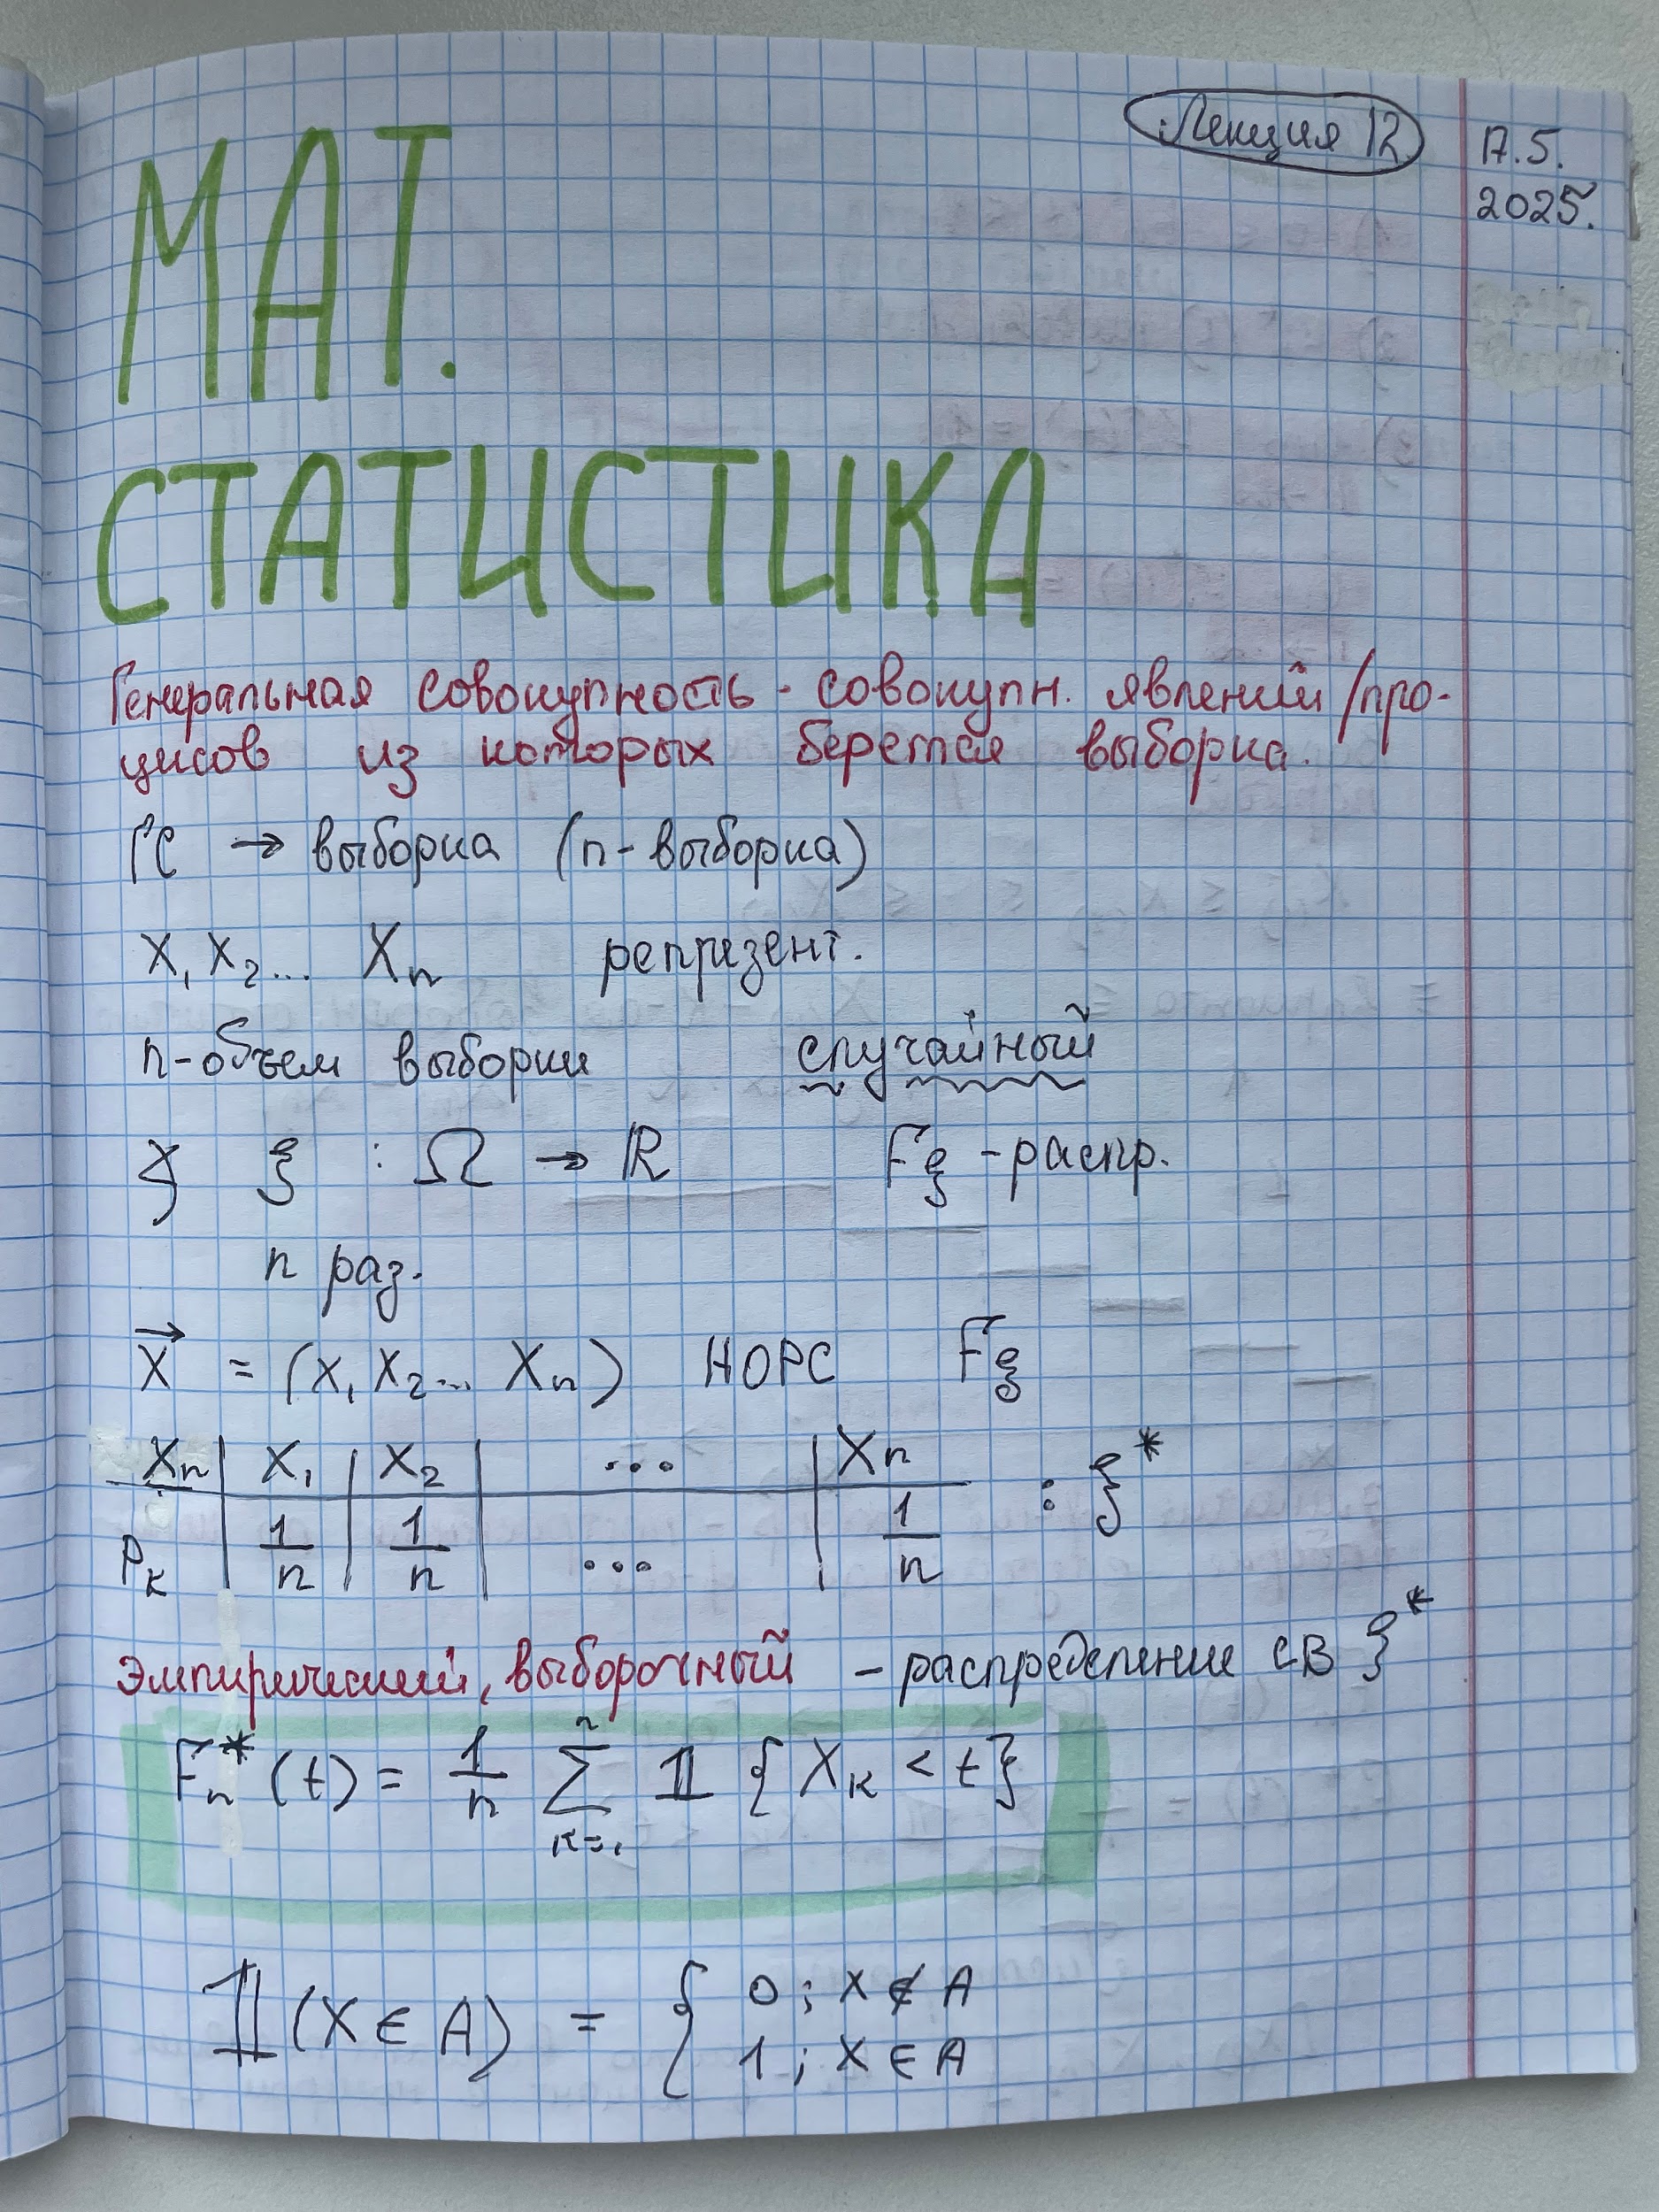 Лекция 12
17.5.
2025.
МАТ.
СТАТИСТИКА
Генеральная совокупность - совокупн. явлений/про-
цисов из которых берется выборка.
ГС → выборка (n-выборка)
X₁ X₂... Xₙ репризент.
n-объем выборки случайный
ξ ξ : Ω → ℝ F_ξ - распр.
n раз.
X⃗ = (X₁ X₂... Xₙ) НОРС F_ξ
Xₙ | X₁ | X₂ | ... | Xₙ : ξ*
Pₖ | 1/n | 1/n | ... | 1/n
Эмпирический, выборочный - распределение СВ ξ*
Fₙ*(t) = 1/n ∑ₖ₌₁ⁿ 𝟙 {Xₖ < t}
𝟙(X ∈ A) = { 0 ; X ∉ A
1 ; X ∈ A